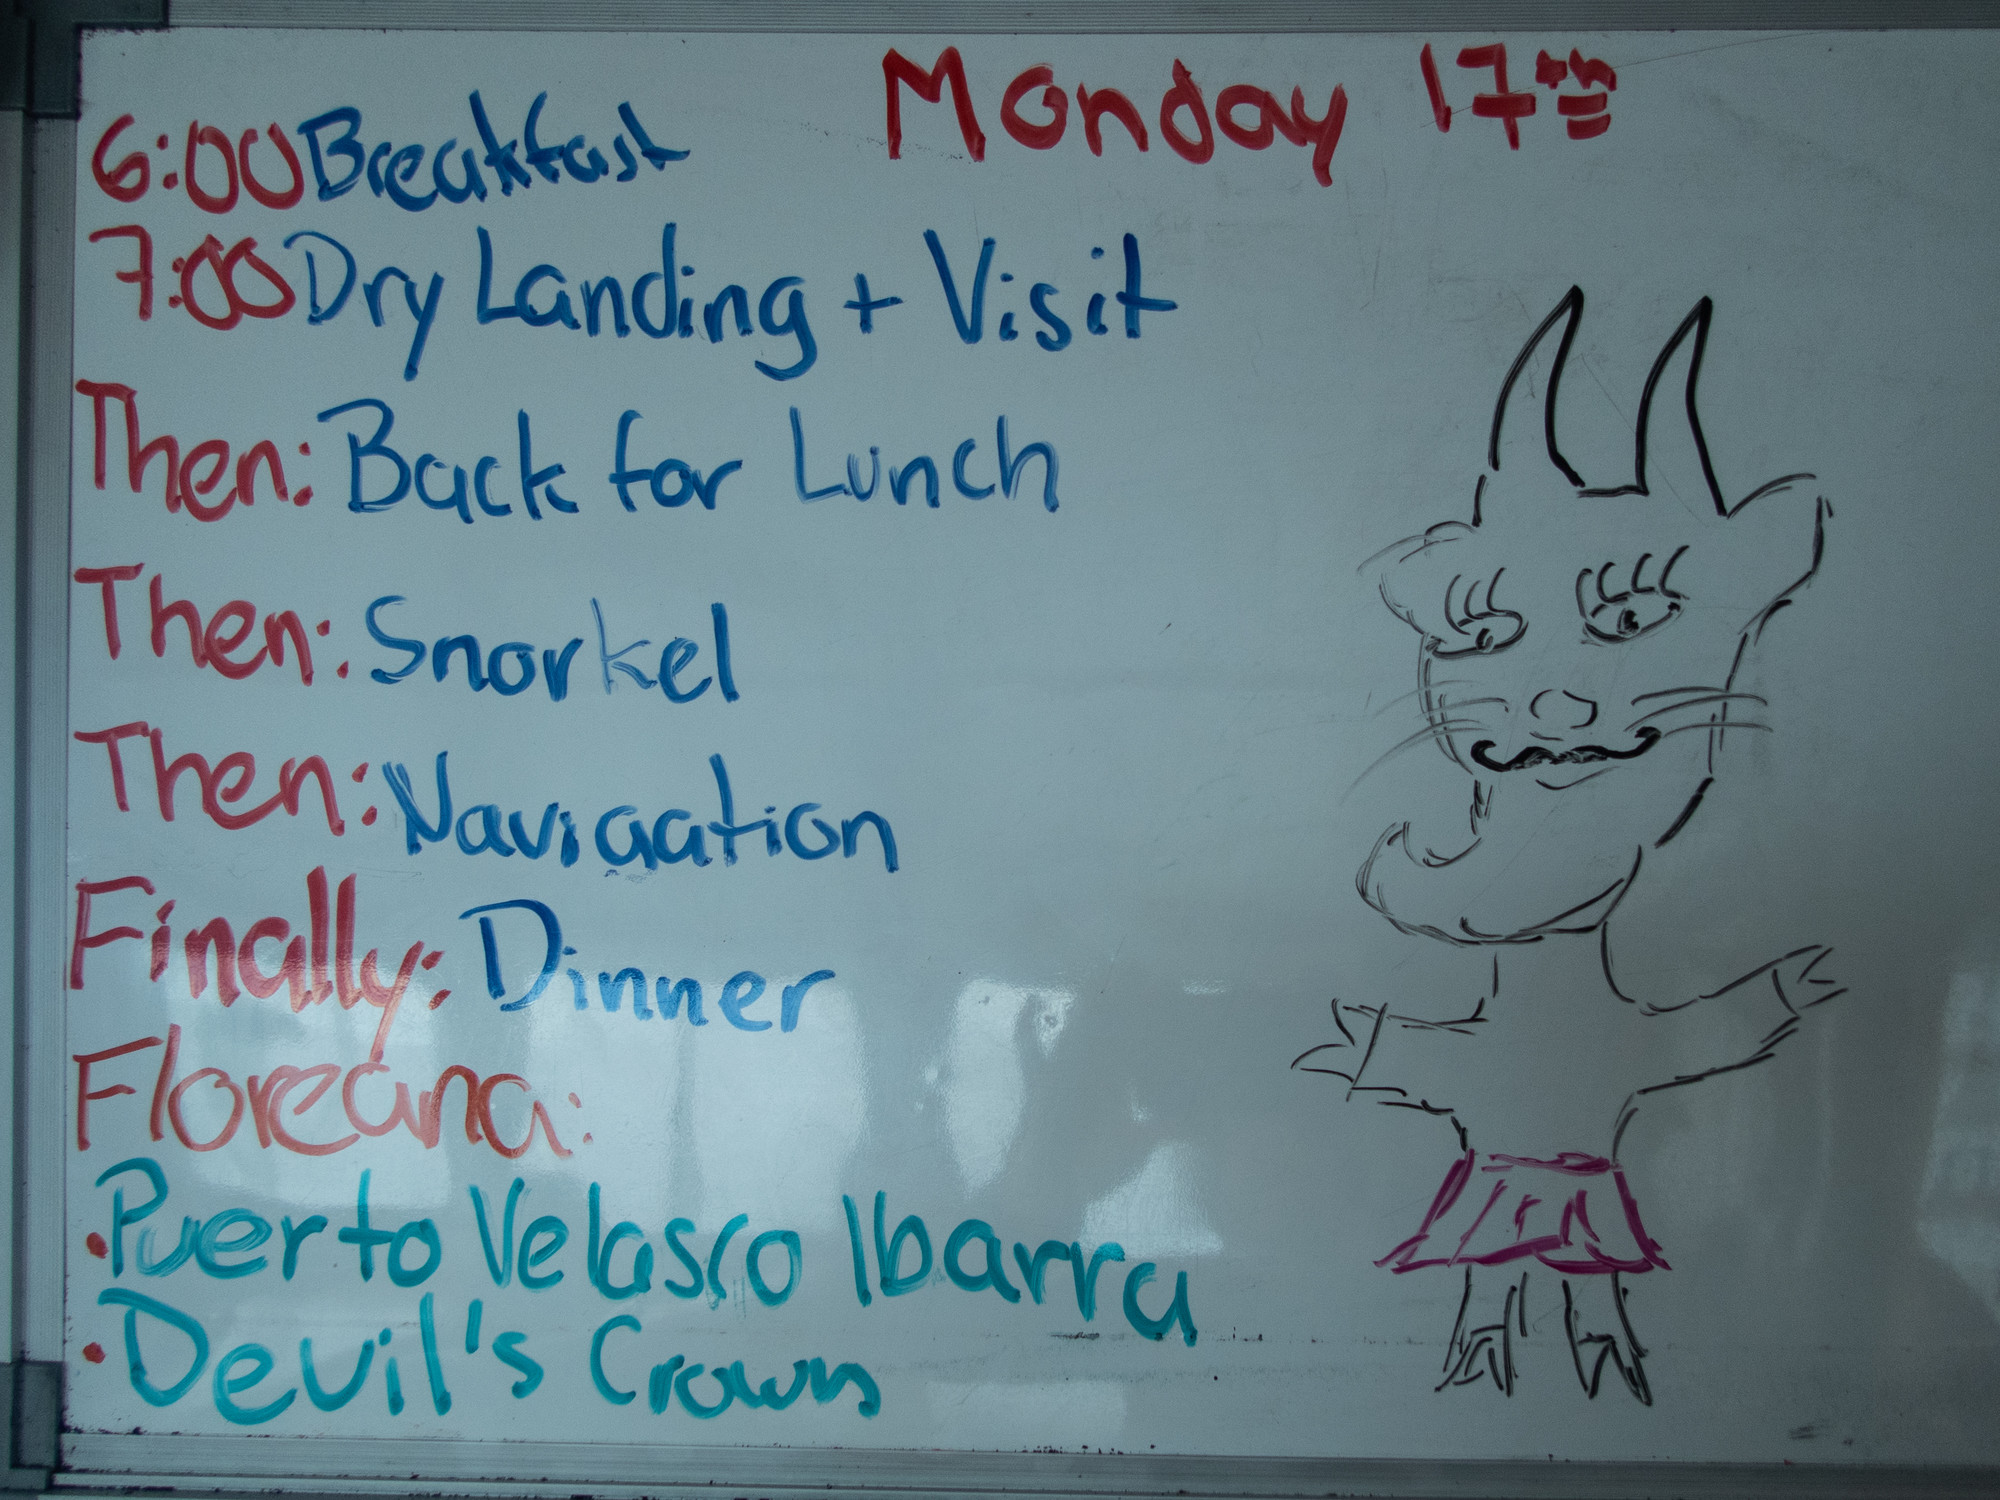 Monday 17th
6:00 Breakfast
7:00 Dry Landing + Visit
Then: Back for Lunch
Then: Snorkel
Then: Navigation
Finally: Dinner
Floreana:
• Puerto Velasco Ibarra
• Devil's Crown